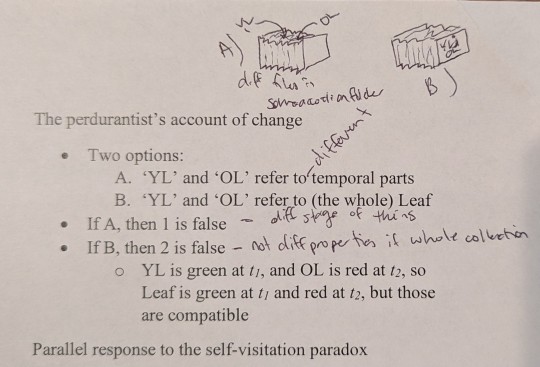 YL OL
A)
B)
diff files in
same accordion folder
The perdurantist's account of change
different
• Two options:
A. 'YL' and 'OL' refer to temporal parts
B. 'YL' and 'OL' refer to (the whole) Leaf
• If A, then 1 is false – diff stage of things
• If B, then 2 is false – not diff properties if whole collection
○ YL is green at t1, and OL is red at t2, so
Leaf is green at t1 and red at t2, but those
are compatible
Parallel response to the self-visitation paradox